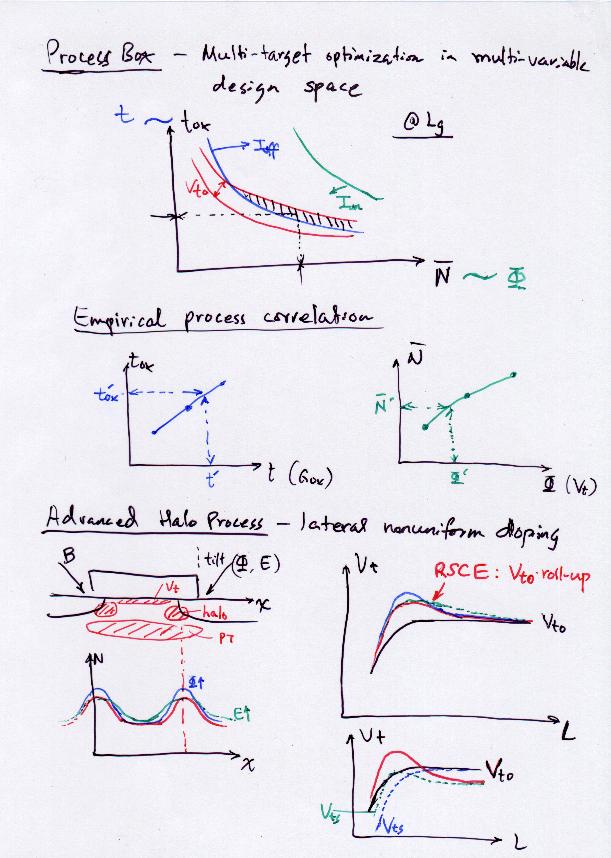 Process Box - Multi-target optimization in multi-variable
design space
t ~ tox
@ Lg
Ioff
Vto
Ion
N̅ ~ Φ
Empirical process correlation
tox
tox'
t'
t (Gox)
N̅
N̅'
Φ'
Φ (Vt)
Advanced Halo Process - lateral nonuniform doping
B
tilt (Φ, E)
Vt
x
halo
PT
N
Φ↑
E↑
x
Vt
RSCE: Vto roll-up
Vto
L
Vt
Vto
Vts
Vts
L